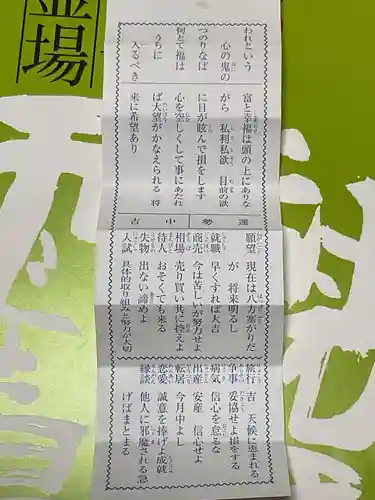 われという
心の鬼の
つのりなば
何とて福は
うちに
入るべき
富と幸福は頭の上にありな
がら 私利私欲 目前の欲
に目が眩んで損をします
心を空しくして事にあたれ
ば大望がかなえられる 将
来に希望あり
運勢 中吉
願望 現在は八方塞がりだ
が 将来明るし
就職 早くすれば大吉
商売 今は苦しいが努力せよ
相場 売り買い共に控えよ
待人 おそくても来る
失物 出ない諦めよ
入試 具体的取り組みと努力が大切
旅行 吉 天候に恵まれる
争事 妥協せよ損をする
病気 信心を怠るな
出産 安産 信心せよ
転居 今月中よし
恋愛 誠意を捧げよ成就
縁談 他人に邪魔される急
げばまとまる
場